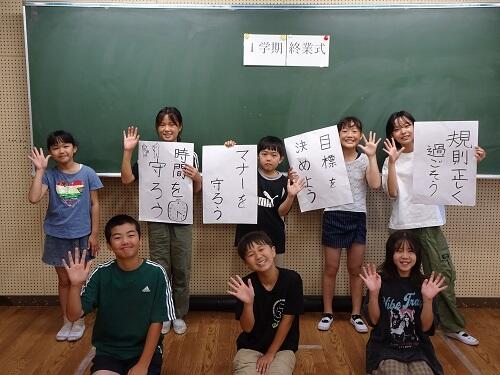 1学期 終業式
時間を
守ろう
マナーを
守ろう
目標を
決めよう
規則正しく
過ごそう
adidas
Vibe Train